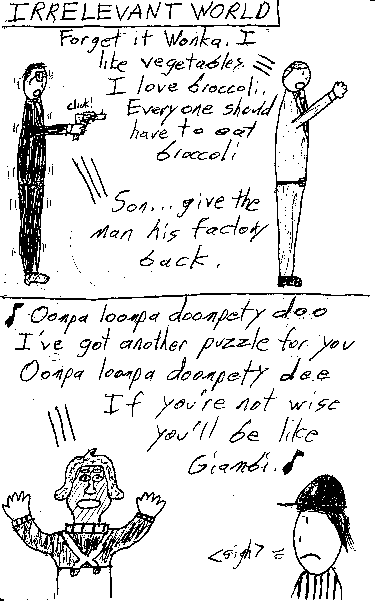 IRRELEVANT WORLD
Forget it Wonka. I
like vegetables.
I love broccoli.
Everyone should
have to eat
broccoli
click!
Son... give the
man his factory
back.
♪ Oompa loompa doompety doo
I've got another puzzle for you
Oompa loompa doompety dee
If you're not wise
you'll be like
Giambi. ♪
<sigh>